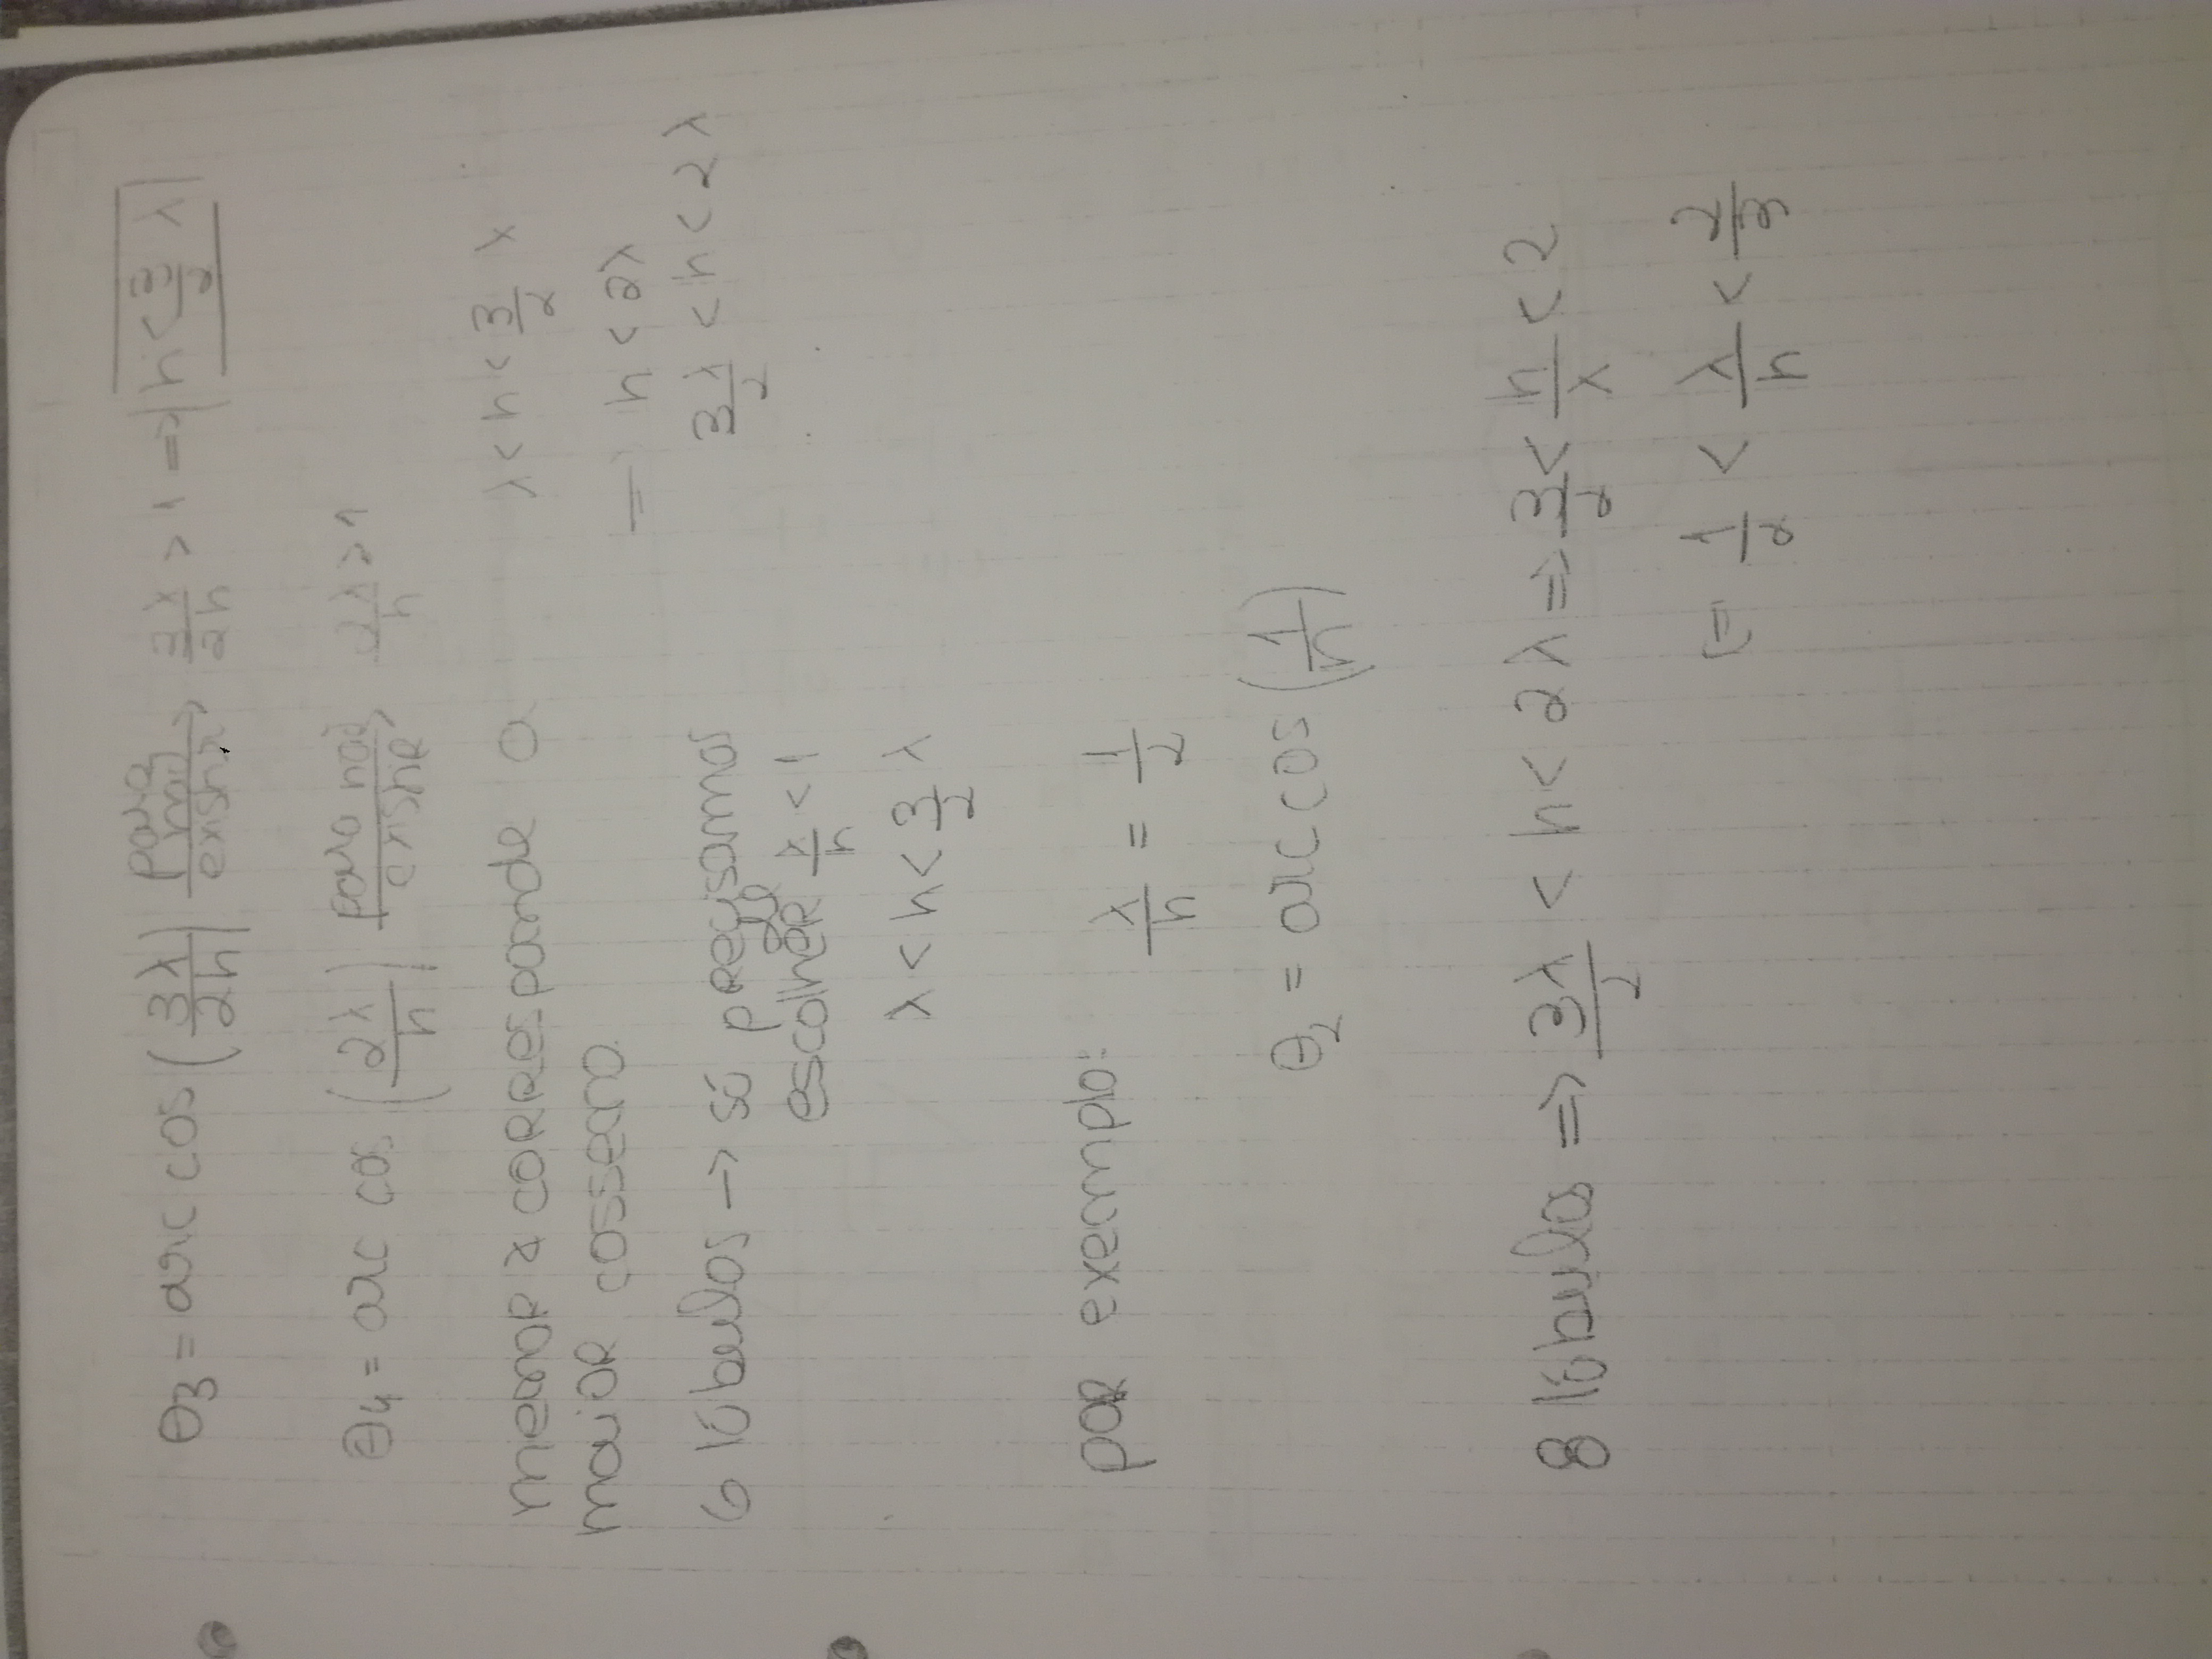 θ3 = arc cos (3λ/2h) para não existir → 3λ/2h > 1 ⇒ h < 3/2 λ
θ4 = arc cos (2λ/h) para não existir → 2λ/h > 1
menor corresponde a
maior cosseno.
λ < h < 3/2 λ
h < 2λ
3λ/2 < h < 2λ
6 lóbulos → só precisamos
escolher λ/h < 1
λ < h < 3/2 λ
por exemplo: λ/h = 1/2
θ2 = arc cos (1/h)
8 lóbulos ⇒ 3λ/2 < h < 2λ ⇒ 3/2 < h/λ < 2
= 1/2 < λ/h < 2/3